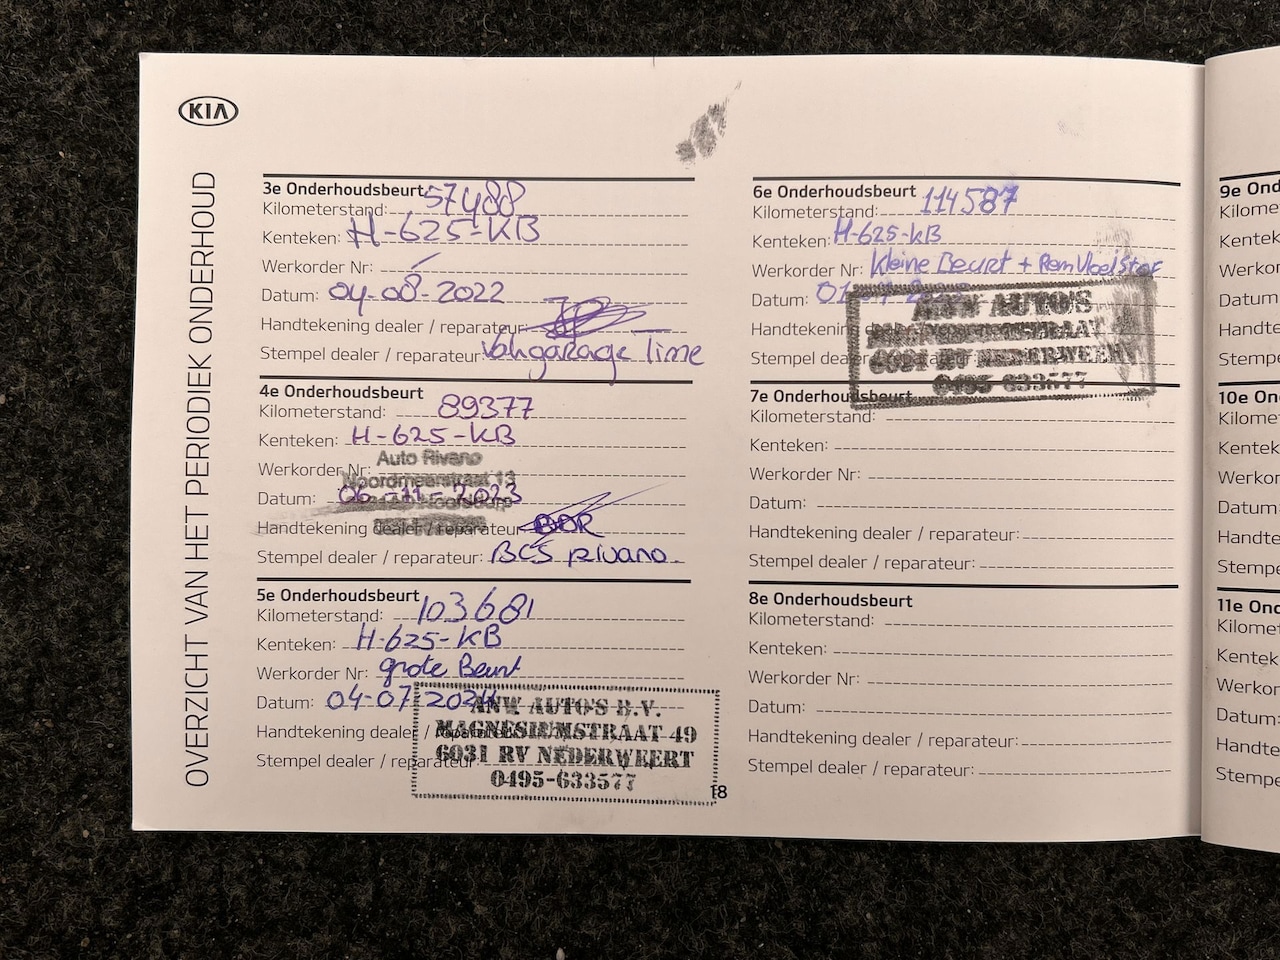 KIA
OVERZICHT VAN HET PERIODIEK ONDERHOUD
3e Onderhoudsbeurt
Kilometerstand: 57488
Kenteken: H-625-KB
Werkorder Nr: /
Datum: 04-08-2022
Handtekening dealer / reparateur:
Stempel dealer / reparateur: Vakgarage Time
4e Onderhoudsbeurt
Kilometerstand: 89377
Kenteken: H-625-KB
Auto Rivano
Werkorder Nr:
Noordmeerstraat 13
Datum: 06-11-2023
Handtekening dealer / reparateur: BDR
Stempel dealer / reparateur: BCS Rivano.
5e Onderhoudsbeurt
Kilometerstand: 103681
Kenteken: H-625-KB
Werkorder Nr: grote Beurt
Datum: 04-07-2024
Handtekening dealer / reparateur:
Stempel dealer / reparateur:
ANW AUTO'S B.V.
MAGNESIUMSTRAAT 49
6031 RV NEDERWEERT
0495-633577
18
6e Onderhoudsbeurt
Kilometerstand: 114587
Kenteken: H-625-KB
Werkorder Nr: Kleine Beurt + RemVloeistof
Datum:
Handtekening dealer / reparateur
Stempel dealer / reparateur
ANW AUTO'S
MAGNESIUMSTRAAT
6031 RV NEDERWEERT
0495-633577
7e Onderhoudsbeurt
Kilometerstand:
Kenteken:
Werkorder Nr:
Datum:
Handtekening dealer / reparateur:
Stempel dealer / reparateur:
8e Onderhoudsbeurt
Kilometerstand:
Kenteken:
Werkorder Nr:
Datum:
Handtekening dealer / reparateur:
Stempel dealer / reparateur:
9e Ond
Kilome
Kentek
Werkor
Datum:
Handte
Stempe
10e On
Kilome
Kentek
Werkor
Datum:
Handte
Stempe
11e Ond
Kilomet
Kentek
Werkor
Datum:
Handte
Stempe